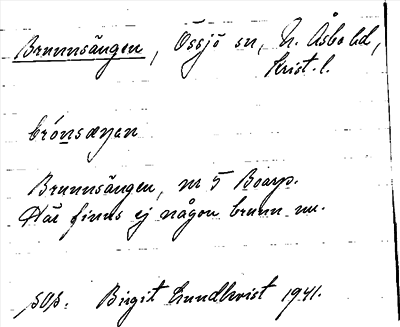 Brunnsängen, Össjö sn, N. Åsbo hd,
Krist. l.
Brunnsängen, nr 5 Boarp.
Här finns ej någon brunn nu.
Birgit Lundkvist 1941.